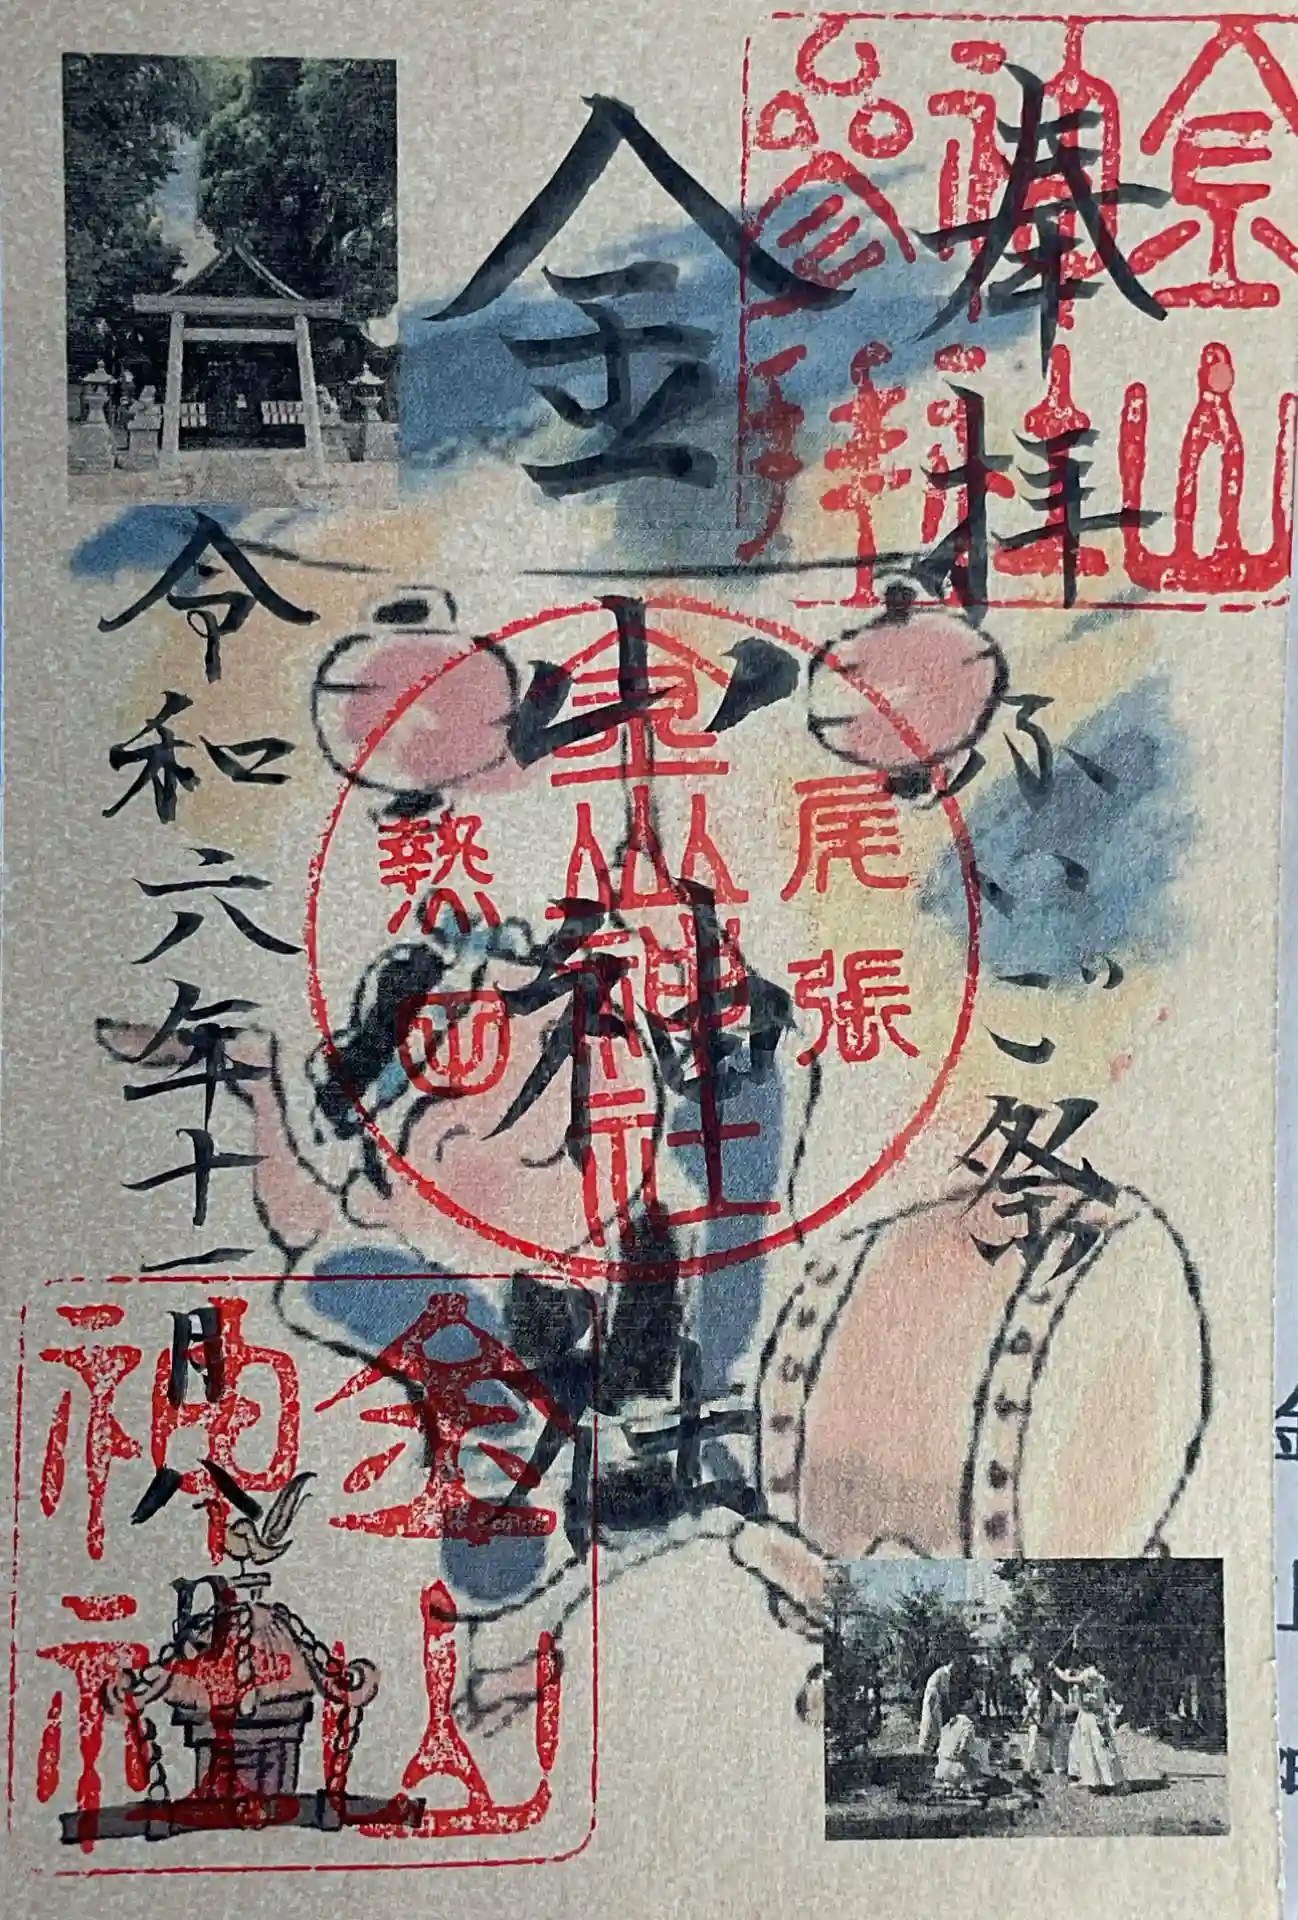 奉拝
ふいご祭
金山神社
令和六年十一月八日
尾張
熱田
金山神社
金山
神社
金山
神社
参拝